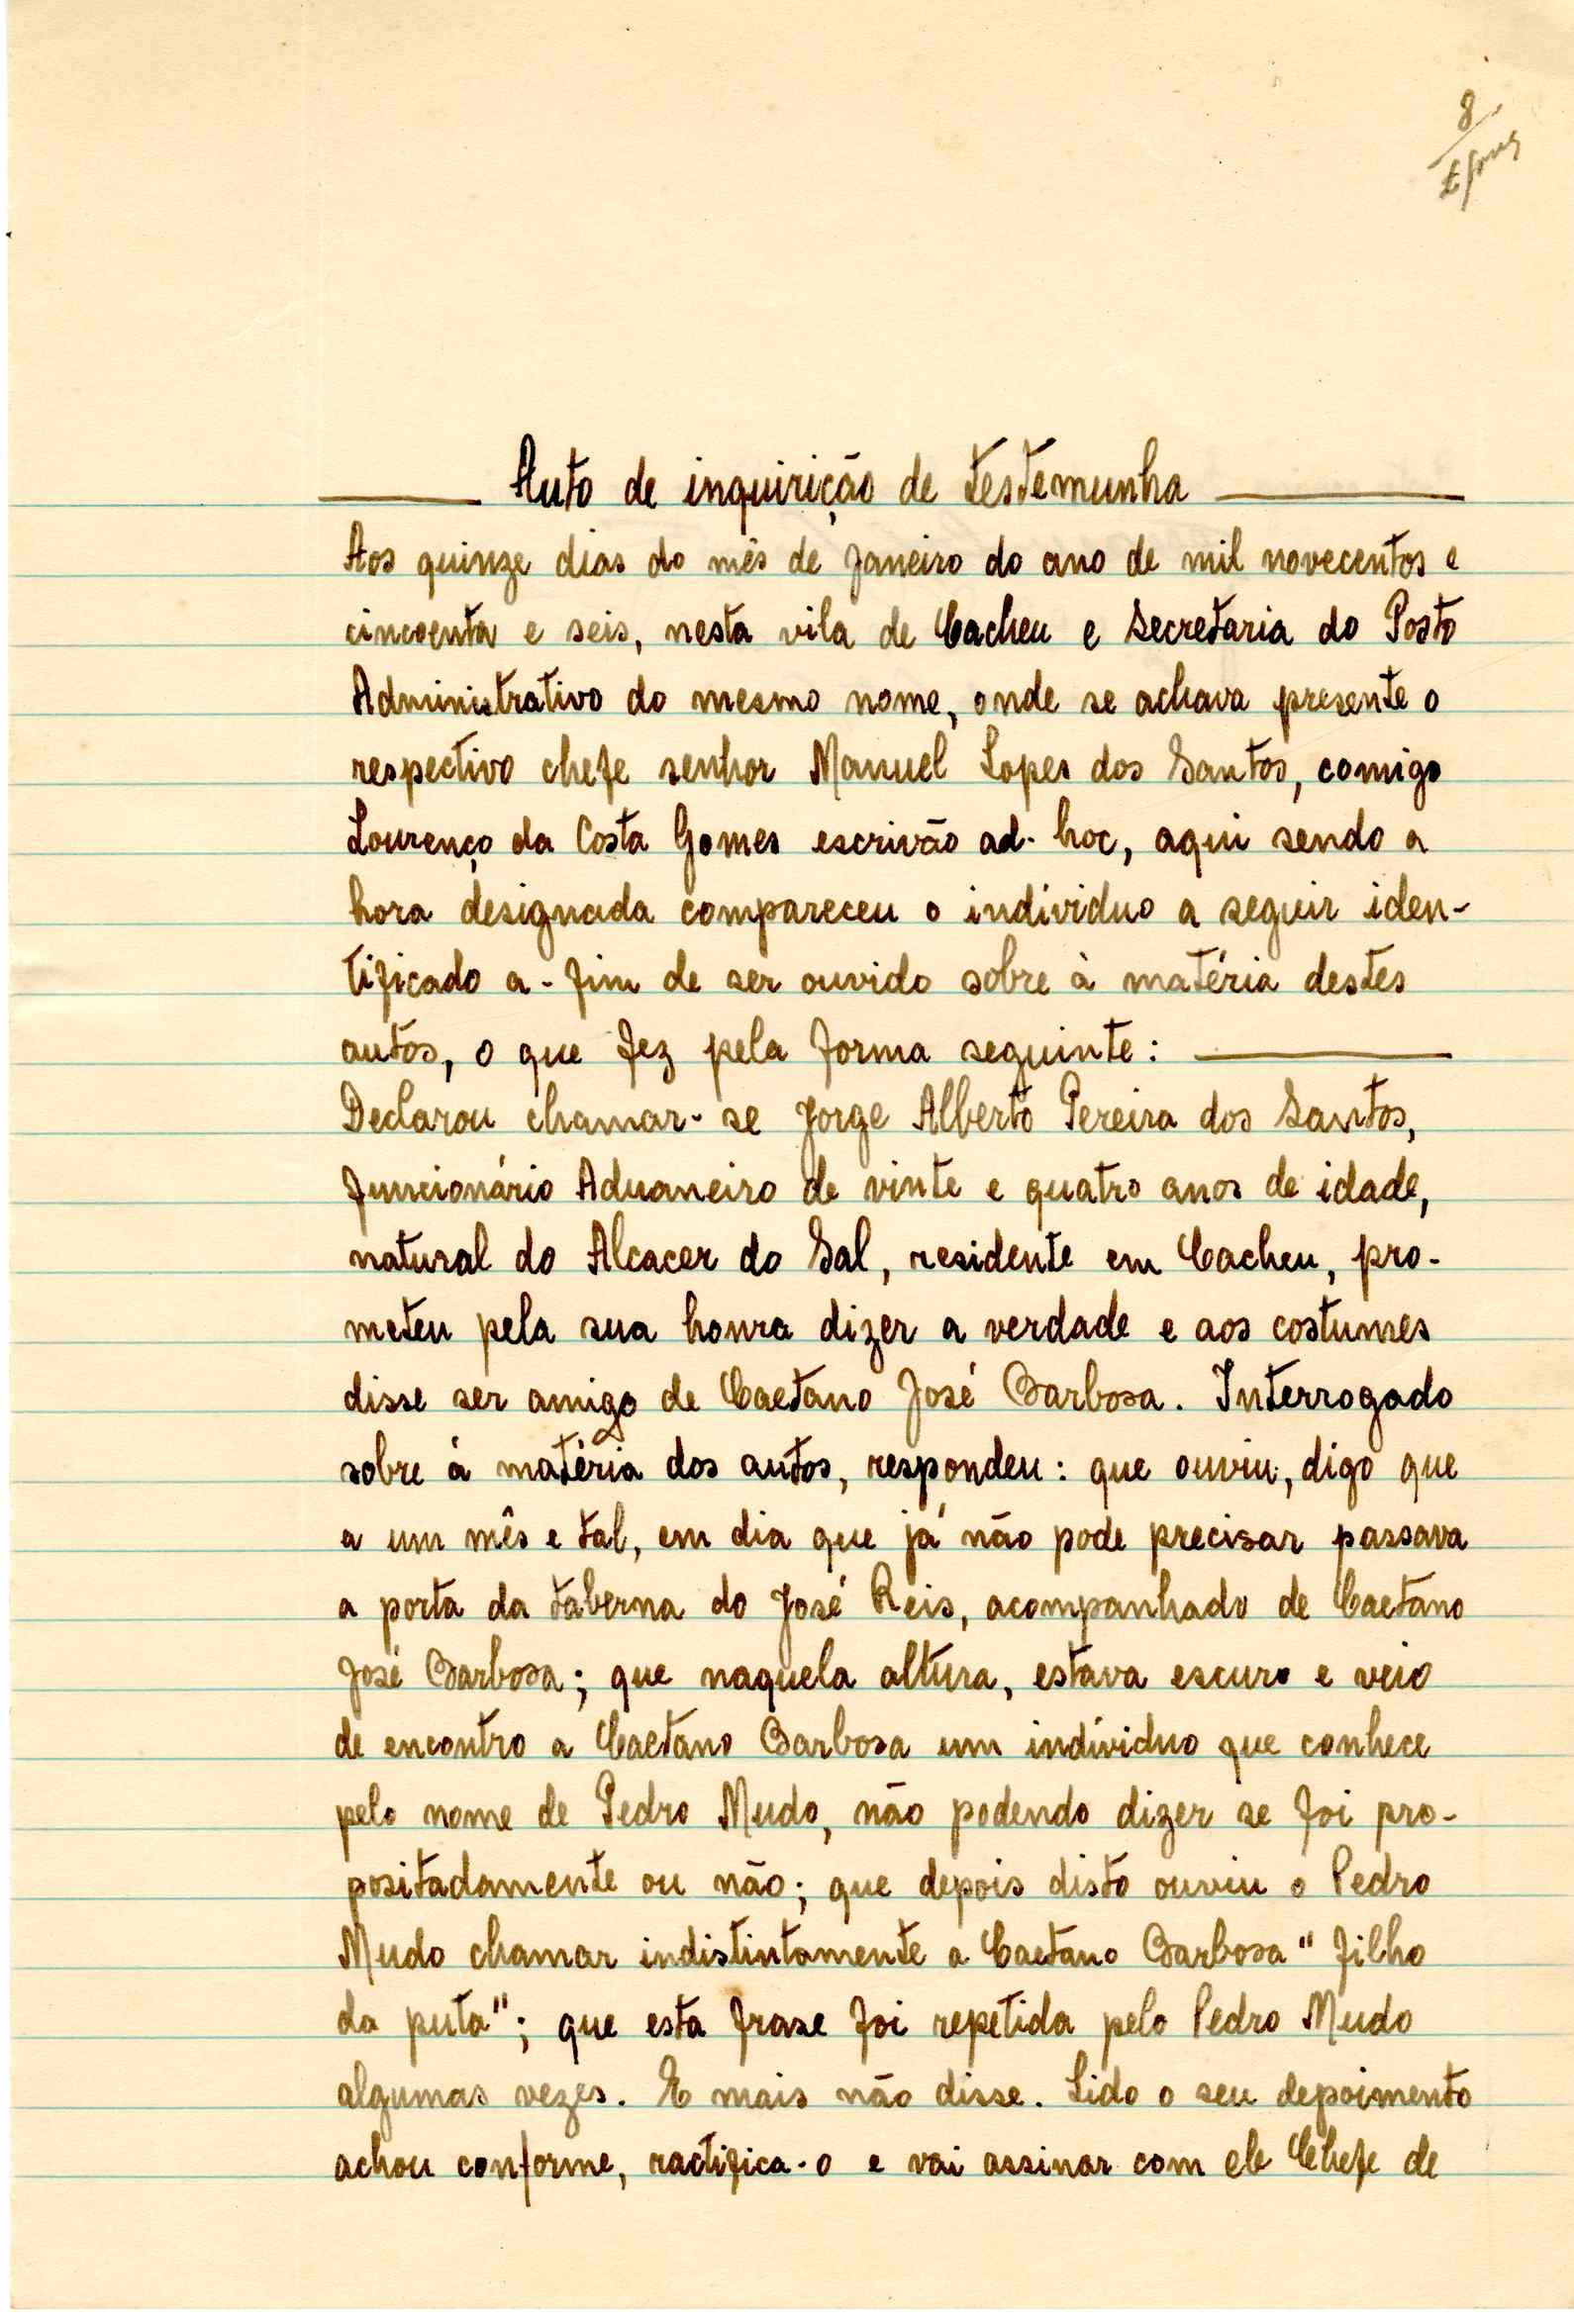 8
——— Auto de inquirição de testemunha ———
Aos quinze dias do mês de Janeiro do ano de mil novecentos e
cincoenta e seis, nesta vila de Cacheu e Secretaria do Posto
Administrativo do mesmo nome, onde se achava presente o
respectivo chefe senhor Manuel Lopes dos Santos, comigo
Lourenço da Costa Gomes escrivão ad-hoc, aqui sendo a
hora designada compareceu o indivíduo a seguir iden-
tificado a-fim de ser ouvido sobre à matéria destes
autos, o que fez pela forma seguinte: ———
Declarou chamar-se Jorge Alberto Pereira dos Santos,
funcionário Aduaneiro de vinte e quatro anos de idade,
natural do Alcacer do Sal, residente em Cacheu, pro-
meteu pela sua honra dizer a verdade e aos costumes
disse ser amigo de Caetano José Barbosa. Interrogado
sobre à matéria dos autos, respondeu: que ouviu, digo que
a um mês e tal, em dia que já não pode precisar passava
a porta da taberna do José Reis, acompanhado de Caetano
José Barbosa; que naquela altura, estava escuro e veio
de encontro a Caetano Barbosa um indivíduo que conhece
pelo nome de Pedro Mudo, não podendo dizer se foi pro-
positadamente ou não; que depois disto ouviu o Pedro
Mudo chamar indistintamente a Caetano Barbosa "filho
da puta"; que esta frase foi repetida pelo Pedro Mudo
algumas vezes. E mais não disse. Lido o seu depoimento
achou conforme, ractifica-o e vai assinar com ele Chefe de